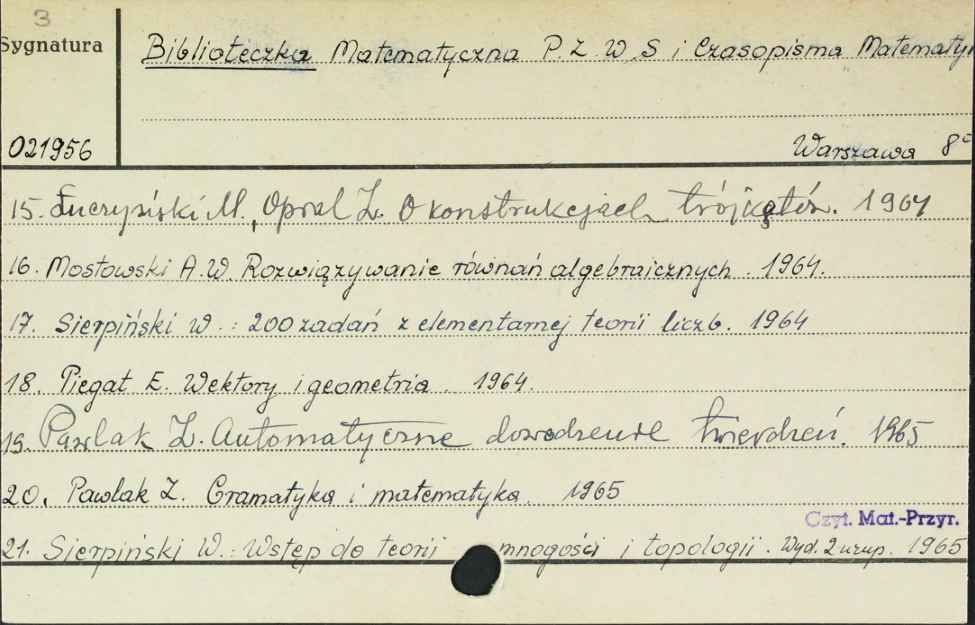 3
Sygnatura
Biblioteczka Matematyczna P.Z.W.S i Czasopisma Matematy
021956
Warszawa 8°
15. Łuczyński M., Opial Z. O konstrukcjach trójkątów. 1964
16. Mostowski A.W. Rozwiązywanie równań algebraicznych. 1964.
17. Sierpiński W.: 200 zadań z elementarnej teorii liczb. 1964
18. Piegat E. Wektory i geometria. 1964.
19. Pawlak Z. Automatyczne dowodzenie twierdzeń. 1965
20. Pawlak Z. Gramatyka i matematyka. 1965
Czyt. Mat.-Przyr.
21. Sierpiński W.: Wstęp do teorii mnogości i topologii. Wyd. 2 uzup. 1965